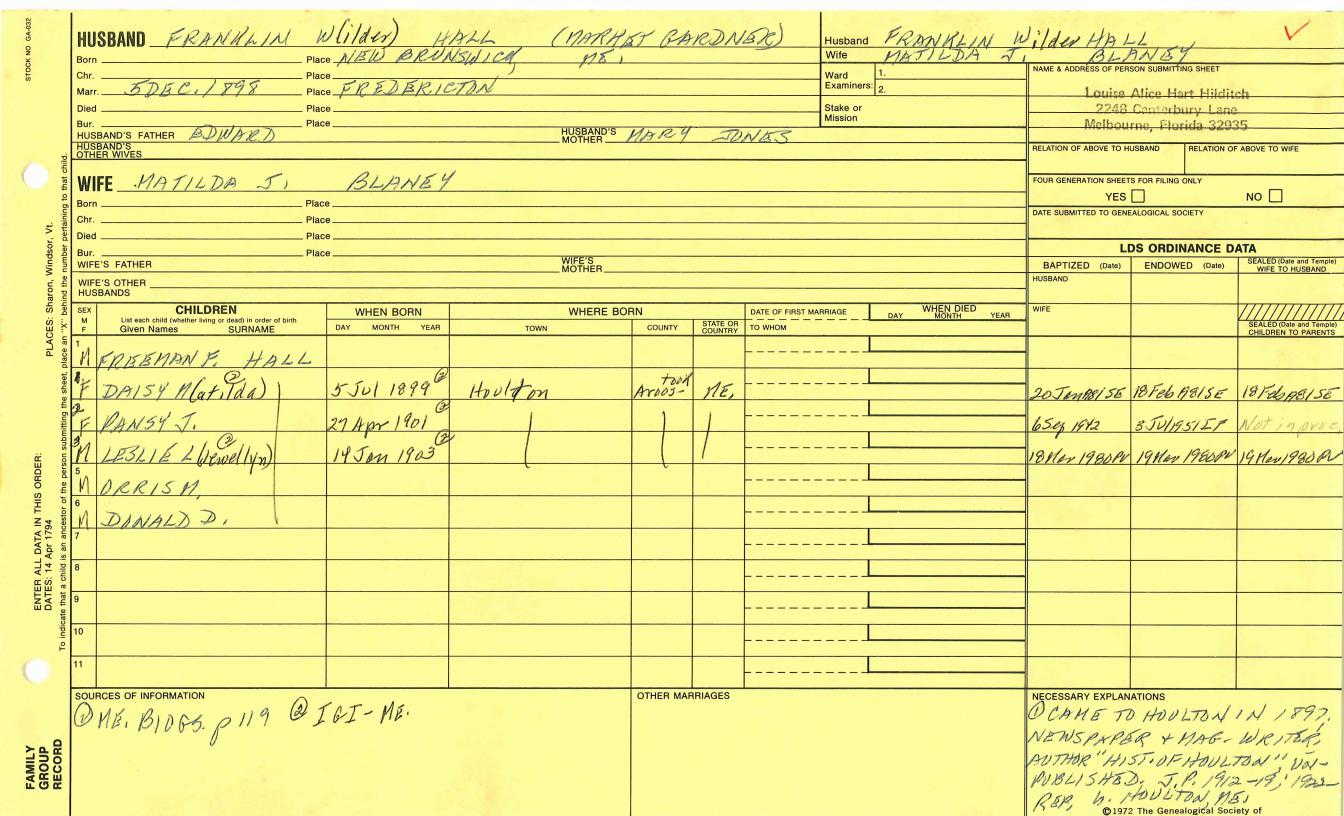 STOCK NO. GA-032
HUSBAND FRANKLIN W(ilder) HALL (MARKET GARDNER)
Born Place NEW BRUNSWICK, ME.
Chr. Place
Marr. 5 DEC. 1898 Place FREDERICTON
Died Place
Bur. Place
HUSBAND'S FATHER EDWARD HUSBAND'S MOTHER MARY JONES
HUSBAND'S OTHER WIVES
Husband FRANKLIN Wilder HALL
Wife MATILDA J. BLANEY
Ward Examiners: 1.
2.
Stake or Mission
NAME & ADDRESS OF PERSON SUBMITTING SHEET
Louise Alice Hart Hilditch
2248 Canterbury Lane
Melbourne, Florida 32935
RELATION OF ABOVE TO HUSBAND RELATION OF ABOVE TO WIFE
FOUR GENERATION SHEETS FOR FILING ONLY
YES NO
DATE SUBMITTED TO GENEALOGICAL SOCIETY
WIFE MATILDA J. BLANEY
Born Place
Chr. Place
Died Place
Bur. Place
WIFE'S FATHER WIFE'S MOTHER
WIFE'S OTHER HUSBANDS
LDS ORDINANCE DATA
BAPTIZED (Date) ENDOWED (Date) SEALED (Date and Temple) WIFE TO HUSBAND
HUSBAND
WIFE
SEALED (Date and Temple) CHILDREN TO PARENTS
SEX M F
CHILDREN
List each child (whether living or dead) in order of birth
Given Names SURNAME
WHEN BORN
DAY MONTH YEAR
WHERE BORN
TOWN COUNTY STATE OR COUNTRY
DATE OF FIRST MARRIAGE
TO WHOM
WHEN DIED
DAY MONTH YEAR
1 M FREEMAN F. HALL
F DAISY M(atilda) ② 5 Jul 1899 ② Houlton Aroostook ME. 18 Feb 18 Feb
2 F PANSY J. 27 Apr 1901 ② 6 Sep 1942 3 Jul 1951
3 M LESLIE L(lewellyn) ② 14 Jan 1903 ② 18 Mar 1980 PV 19 Mar 1980 PV 19 Mar 1980 PV
5 M ORRIS M.
6 M DONALD D.
7
8
9
10
11
SOURCES OF INFORMATION
① ME. BIOGS. p 119 ② IGI-ME.
OTHER MARRIAGES
NECESSARY EXPLANATIONS
① CAME TO HOULTON IN 1897.
NEWSPAPER & MAG. WRITER,
AUTHOR "HIST. OF HOULTON", UN-
PUBLISHED. J.P. 1912-19; 1922-
REP. HOULTON, ME.
©1972 The Genealogical Society of
PLACES: Sharon, Windsor, Vt.
To indicate that a child is an ancestor of the person submitting the sheet, place an "X" behind the number pertaining to that child.
ENTER ALL DATA IN THIS ORDER:
DATES: 14 Apr 1794
FAMILY GROUP RECORD